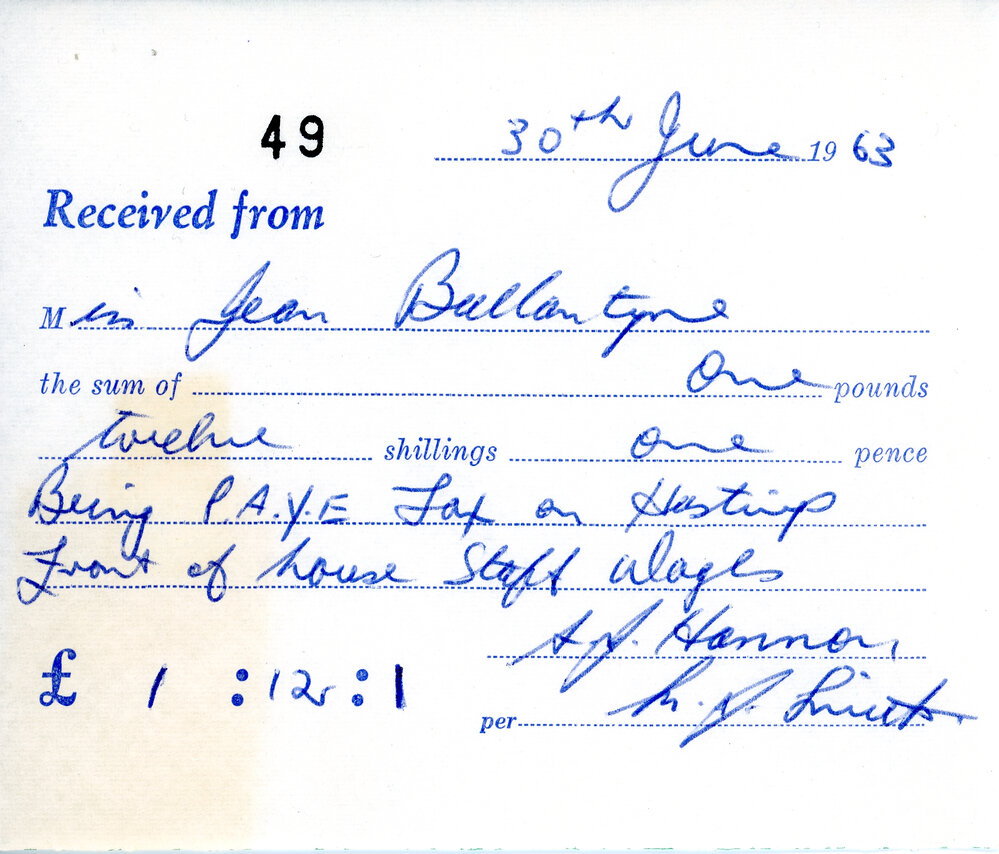 49
30th June 1963
Received from
Miss Jean Ballantyne
the sum of One pounds
twelve shillings one pence
Being P.A.Y.E Tax on Hastings
Front of house Staff Wages
£ 1 : 12 : 1
Hannon
per